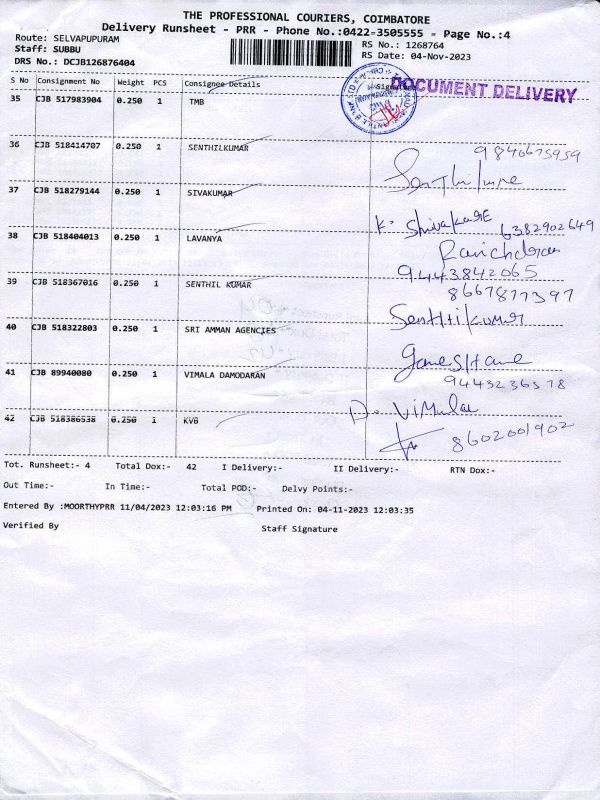 THE PROFESSIONAL COURIERS, COIMBATORE
Delivery Runsheet - PRR - Phone No.:0422-3505555 - Page No.:4
Route: SELVAPUPURAM
Staff: SUBBU
DRS No.: DCJB126876404
RS No.: 1268764
RS Date: 04-Nov-2023
S No Consignment No Weight PCS Consignee Details Signature
DOCUMENT DELIVERY
35 CJB 517983904 0.250 1 TMB
36 CJB 518414707 0.250 1 SENTHILKUMAR
9846675959
37 CJB 518279144 0.250 1 SIVAKUMAR
K. 6382902649
38 CJB 518404013 0.250 1 LAVANYA
Ravichdran
9443842065
39 CJB 518367016 0.250 1 SENTHIL KUMAR
8667877397
Senthilkumar
40 CJB 518322803 0.250 1 SRI AMMAN AGENCIES
41 CJB 89940080 0.250 1 VIMALA DAMODARAN
9443236578
42 CJB 518386538 0.250 1 KVB
8602001902
Tot. Runsheet:- 4 Total Dox:- 42 I Delivery:- II Delivery:- RTN Dox:-
Out Time:- In Time:- Total POD:- Delvy Points:-
Entered By :MOORTHYPRR 11/04/2023 12:03:16 PM Printed On: 04-11-2023 12:03:35
Verified By Staff Signature